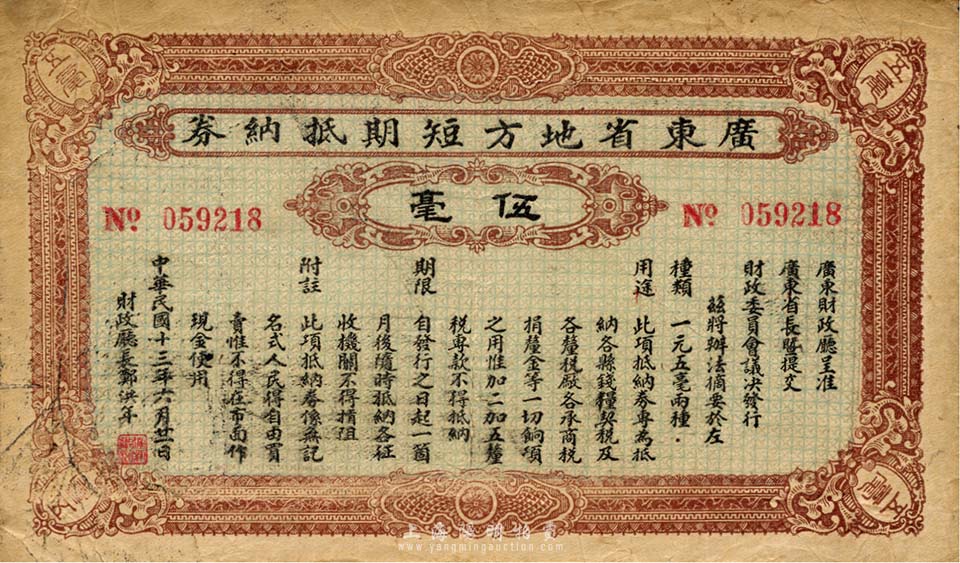 廣東省地方短期抵納券
伍毫
№ 059218
№ 059218
廣東財政廳呈准
廣東省長暨提交
財政委員會議決發行
茲將辦法摘要於左
種類 一元五毫兩種．
用途 此項抵納券專為抵
納各縣錢糧契稅及
各釐稅廠各承商稅
捐釐金等一切餉項
之用惟加二加五釐
稅專款不得抵納
期限 自發行之日起一箇
月後隨時抵納各征
收機關不得揹阻
附註 此項抵納券係無記
名式人民得自由買
賣惟不得在市面作
現金使用
中華民國十三年六月廿一日
財政廳長鄭洪年
五毫
五毫
五毫
五毫
上海陽明拍賣
www.yangmingauction.com